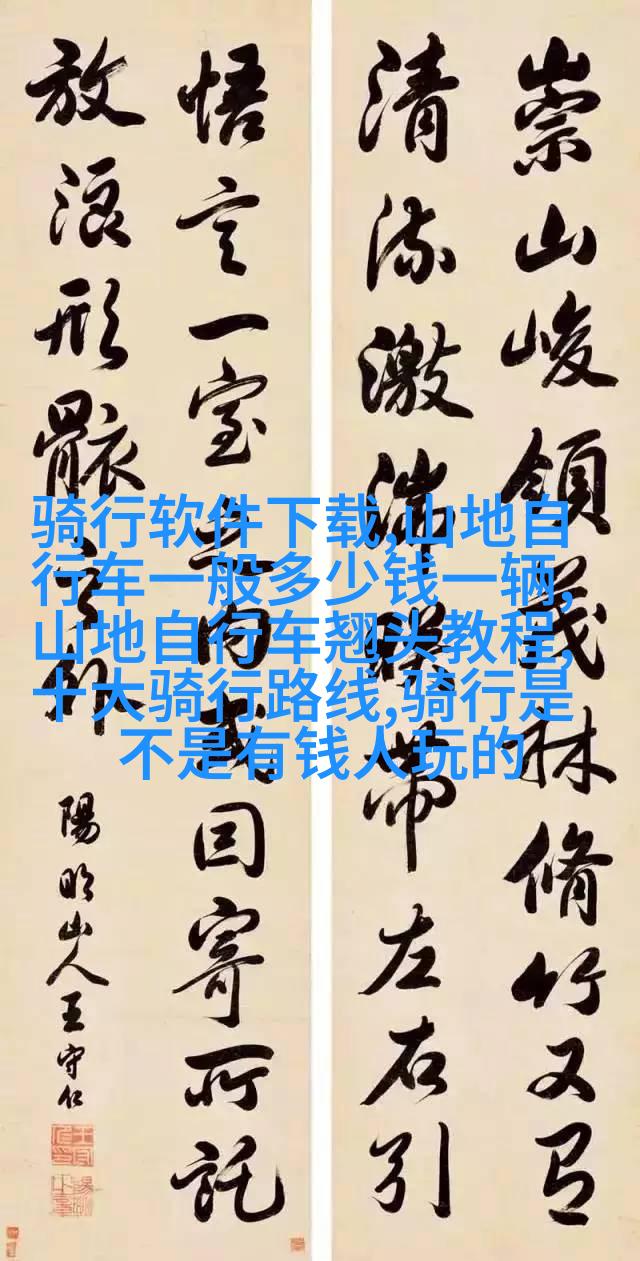 崇山峻領茂林脩竹又有
清流激湍暎帶左右引
悟言一室之内或因寄所託
放浪形骸之外
陽明山人王守仁
骑行软件下载,山地自
行车一般多少钱一辆,
山地自行车翘头教程,
十大骑行路线,骑行是
不是有钱人玩的